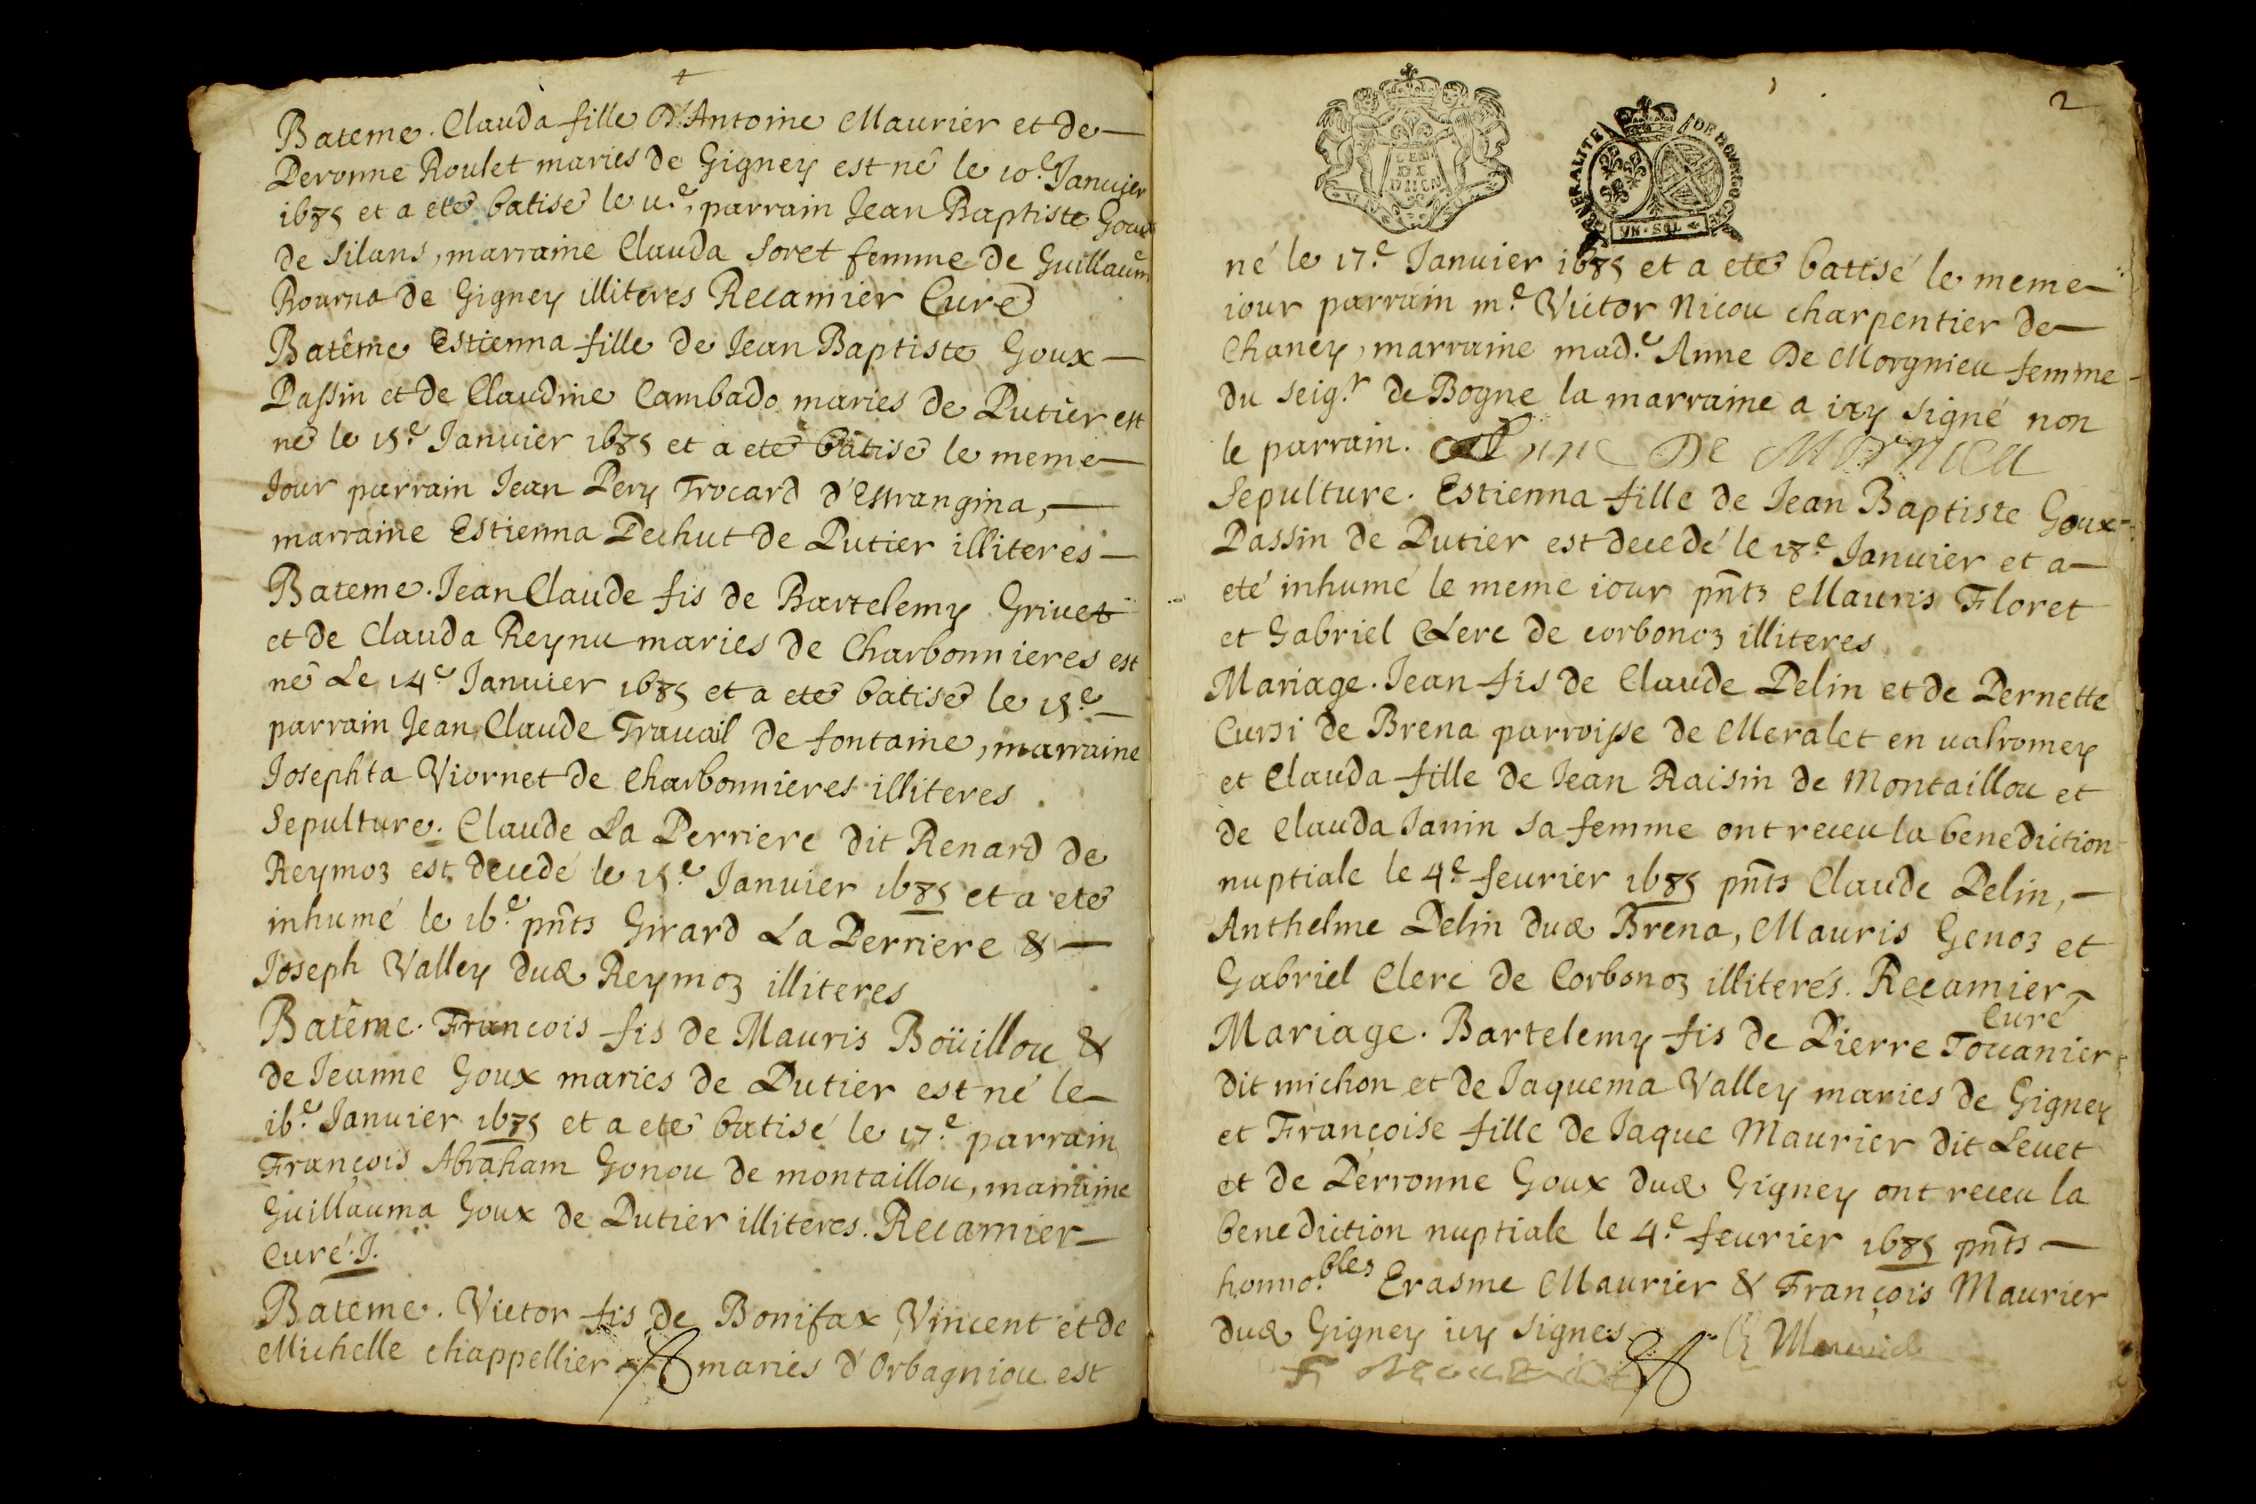 Bateme. Clauda fille d'Antoine Maurier et de
Peronne Roulet maries de Gigney est né le 10e Janvier
1685 et a eté batisé le 11e, parrain Jean Baptiste Goux
de Silans, marraine Clauda Soret femme de Guillaume
Rourna de Gigney illiteres Recamier Curé
Batême Estienna fille de Jean Baptiste Goux
Passin et de Claudine Cambado maries de Putier est
né le 15e Janvier 1685 et a eté batisé le meme
Jour parrain Jean Pery Trocard d'Estrangina,
marraine Estienna Pechut de Putier illiteres
Bateme. Jean Claude fis de Bartelemy Grivet
et de Clauda Reynu maries de Charbonnieres est
né Le 14e Janvier 1685 et a eté batisé le 15e
parrain Jean Claude Travail de fontaine, marraine
Josephta Viornet de Charbonnieres illiteres
Sepulture. Claude La Perriere dit Renard de
Reymoz est decedé le 15e Janvier 1685 et a eté
inhumé le 16e pnts Girard La Perriere &
Joseph Valley dud Reymoz illiteres
Batême. Francois fis de Mauris Boüillou &
de Jeanne Goux maries de Putier est né le
16e Janvier 1685 et a eté batisé le 17e parrain
François Abraham Gonou de montaillou, marraine
Guillauma Goux de Putier illiteres. Recamier
Curé. J.
Bateme. Victor fis de Bonifax Vincent et de
Michelle chappellier maries d'Orbagniou est
2
GENERALITE DE BOURGOGNE
UN·SOL
né le 17e Janvier 1685 et a eté batisé le meme
iour parrain me Victor Nicou charpentier de
Chaney, marraine made Anne De Morgnieu femme
du seigr de Bogne la marraine a icy signé non
le parrain. Anne De Mornieu
Sepulture. Estienna fille de Jean Baptiste Goux
Passin de Putier est decedé le 18e Janvier et a
eté inhumé le meme iour pnts Mauris Floret
et Gabriel Clerc de corbonoz illiteres
Mariage. Jean fis de Claude Pelin et de Pernette
Curzi de Brena parroisse de Meralet en valromey
et Clauda fille de Jean Raisin de Montaillou et
de Clauda Janin sa femme ont receu la benediction
nuptiale le 4e fevrier 1685 pnts Claude Pelin,
Anthelme Pelin dud Brena, Mauris Genoz et
Gabriel Clerc de Corbonoz illiterés. Recamier
Curé
Mariage. Bartelemy fis de Pierre Touanier
dit michon et de Jaquema Valley maries de Gigney
et Françoise fille de Jaque Maurier dit Levet
et de Perronne Goux dud Gigney ont receu la
benediction nuptiale le 4e fevrier 1685 pnts
honno.bles Erasme Maurier & François Maurier
dud Gigney icy signes.